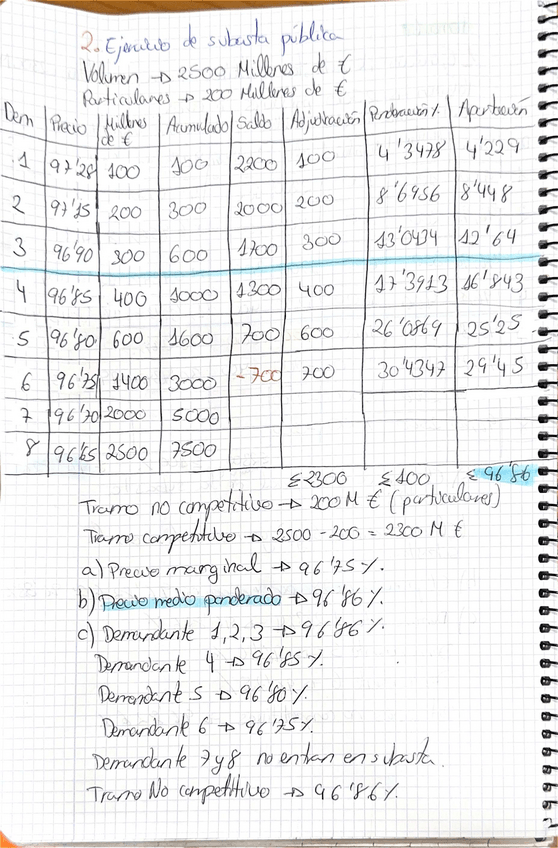 2. Ejercicio de subasta pública
Volumen → 2500 Millones de €
Particulares → 200 Millones de €
Dem Precio Millones de € Acumulado Saldo Adjudicación Ponderación % Aportación
1 97'28 100 100 2200 100 4'3478 4'229
2 97'15 200 300 2000 200 8'6956 8'448
3 96'90 300 600 1700 300 13'0434 12'64
4 96'85 400 1000 1300 400 17'3913 16'843
5 96'80 600 1600 700 600 26'0869 25'25
6 96'75 1400 3000 -700 700 30'4347 29'45
7 96'70 2000 5000
8 96'65 2500 7500
Σ 2300 Σ 100 Σ 96'86
Tramo no competitivo → 200 M € (particulares)
Tramo competitivo → 2500 - 200 = 2300 M €
a) Precio marginal → 96'75 %.
b) Precio medio ponderado → 96'86 %.
c) Demandante 1, 2, 3 → 96'86 %.
Demandante 4 → 96'85 %.
Demandante 5 → 96'80 %.
Demandante 6 → 96'75 %.
Demandante 7 y 8 no entran en subasta.
Tramo No competitivo → 96'86 %.